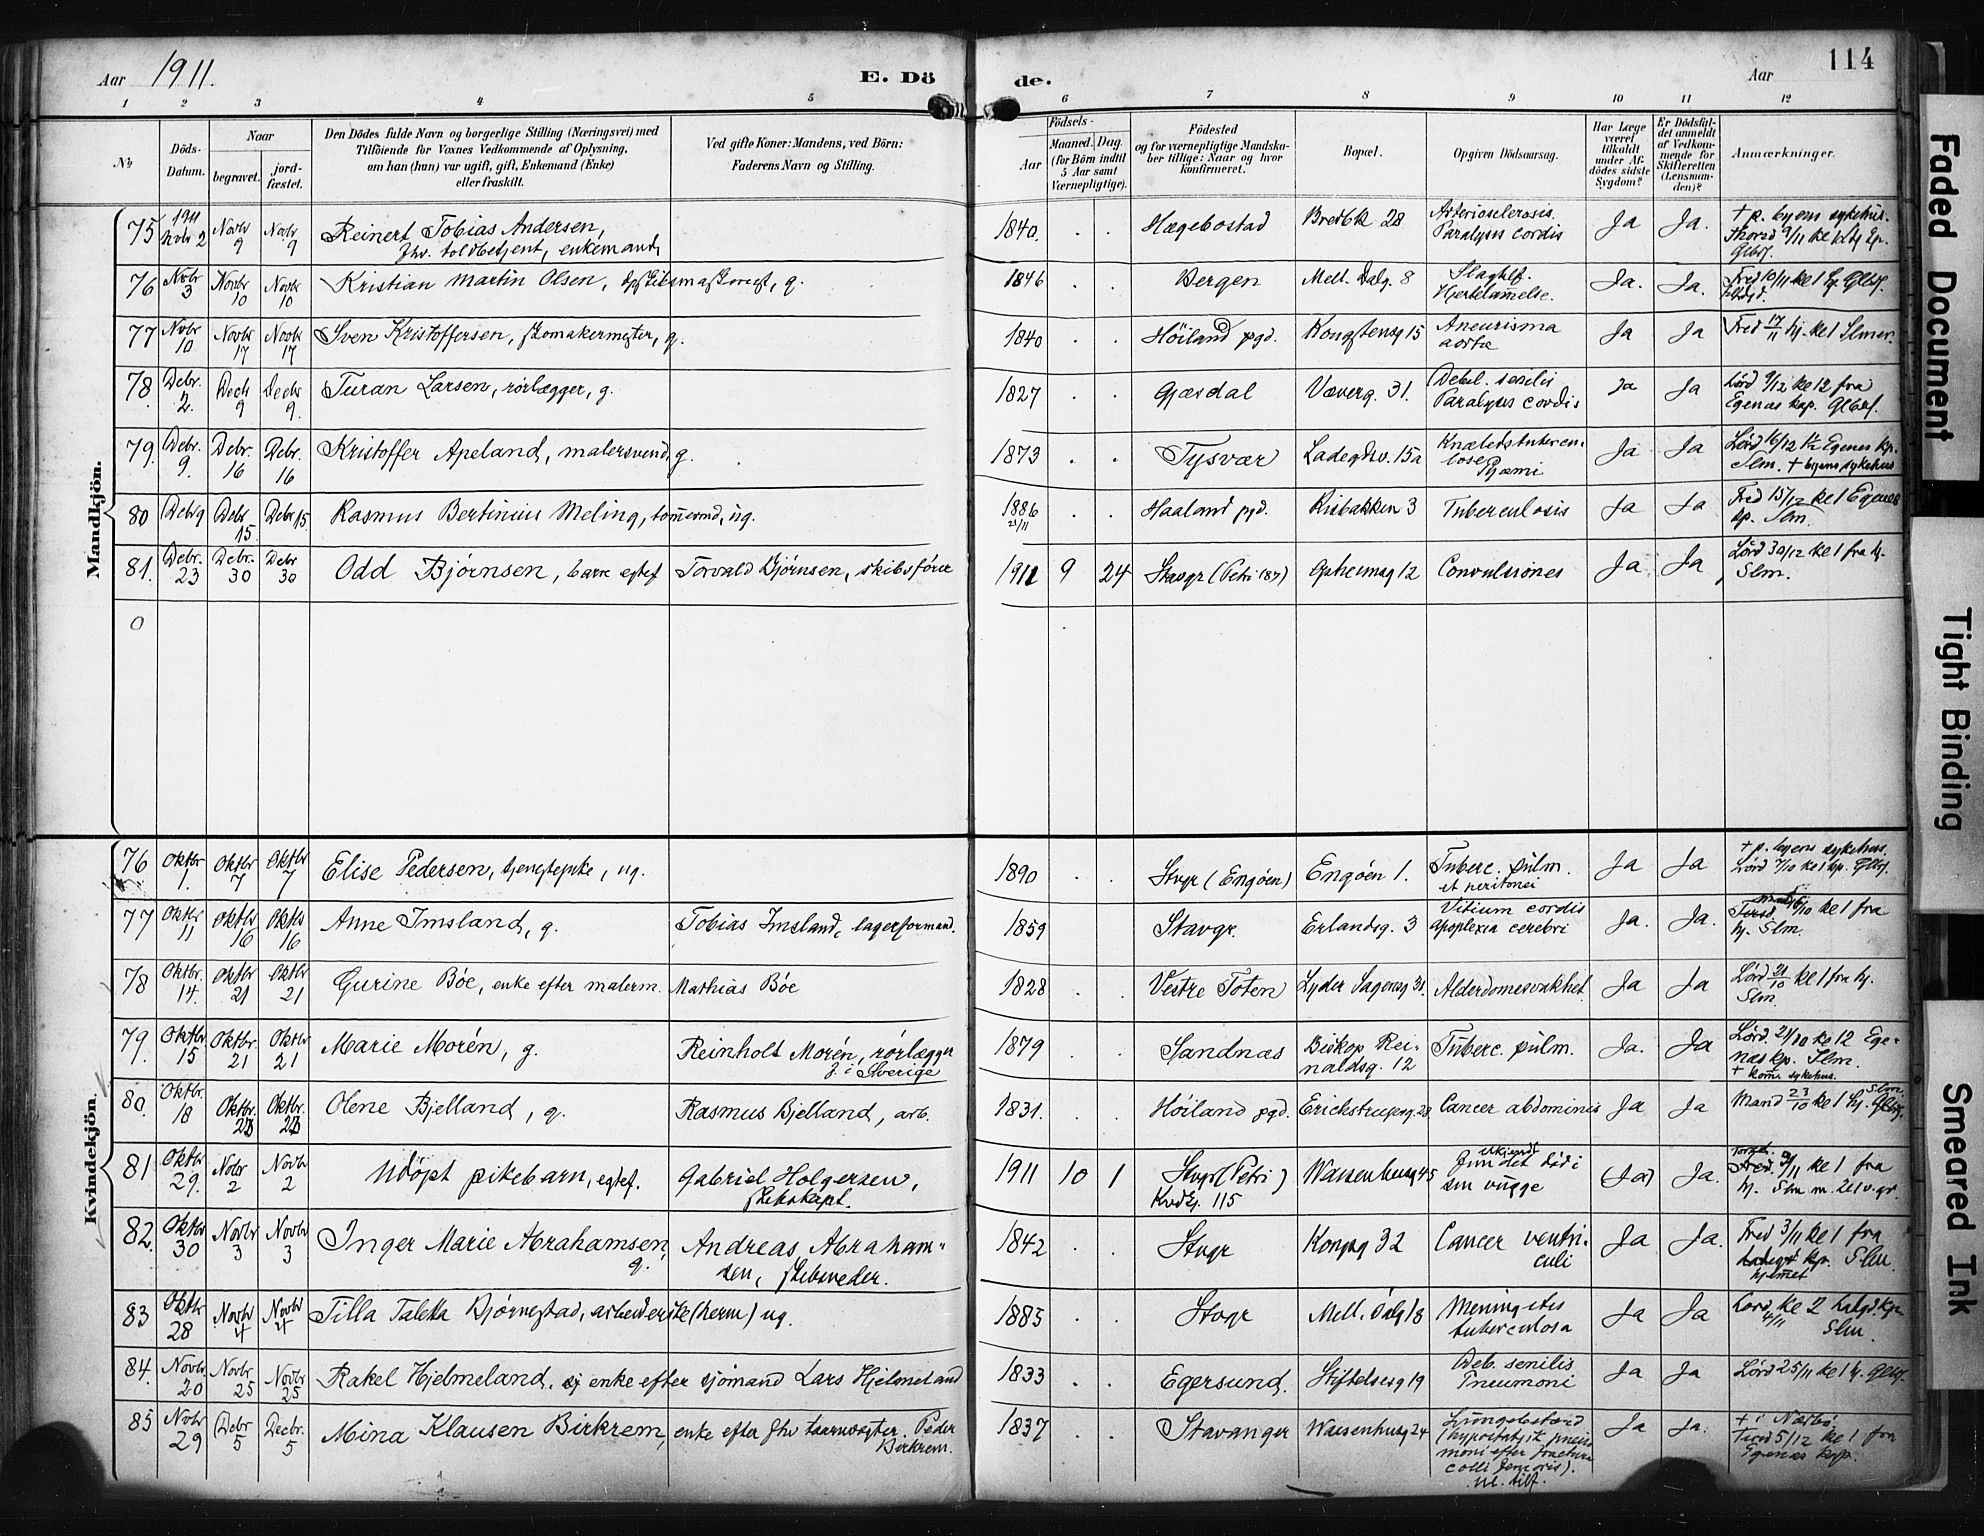 Aar 1911. E. Dö
de. Aar 114
1 2 3 4 5 6 7 8 9 10 11 12
No
Döds-
Datum.
Naar
begravet.
jord-
fæstet.
Den Dödes fulde Navn og borgerlige Stilling (Næringsvei) med
Tilföiende for Voxnes Vedkommende af Oplysning,
om han (hun) var ugift, gift, Enkemand (Enke)
eller fraskilt.
Ved gifte Koner: Mandens, ved Börn:
Faderens Navn og Stilling.
Födsels-
Aar
Maaned. Dag.
(for Börn indtil
5 Aar samt
Værnepligtige).
Födested
og for værnepligtige Mandska-
ber tillige: Naar og hvor
konfirmeret.
Bopæl.
Opgiven Dödsaarsag.
Har Læge
været
tilkaldt
under Af-
dödes sidste
Sygdom?
Er Dödsfal-
det anmeldt
af Vedkom-
mende for
Skifteretten
(Lensman-
den)?
Anmærkninger.
Mandkjön.
75 1911 Novbr 2 Novbr 9 Novbr 9 Reinert Tobias Andersen,
fhv. toldbetjent, enkemand,
1840. Hægebostad Bredbk 28 Arterioselerosis.
Paralysis cordis Ja Ja. + p. byens sykehus.
76 Novbr 3 Novbr 10 Novbr 10 Kristian Martin Olsen, g.
1846 Bergen Mell. Dalg. 8
Hjertelammelse. Ja. Ja.
77 Novbr 10 Novbr 17 Novbr 17 Sven Kristoffersen, skomakermester, g.
1840 Höiland pgd. Kongstensg 15 Aneurisma
aortæ Ja Ja Fred 17/11 hj. kl 1
78. Debr. 2. Decb 9 Decbr 9. Turan Larsen, rörlægger, g.
1827 Gjæsdal Væverg. 31. Debil. senilis
Paralysis cordis Ja Ja Lörd 9/12 kl 12 fra
Egenæs kap. Glbrf.
79. Debr. 9. Debr. 16 Debr. 16 Kristoffer Apeland, malersvend, g.
1873 Tysvær Ladegdsv. 15a Knæledstuberculose
Pyæmi Ja Ja Lörd 16/12 1 1/2 Egenes kp.
Slm. + byens sykehus
80 Debr 9 Debr 15 Debr 15 Rasmus Bertinius Meling, tömermd, ug.
1886
21/11 Haaland pgd. Risbakken 3 Tuberculosis Ja Ja Fred 15/12 kl 1 Egenes
kp. Slm.
81. Debr. 23 Debr. 30 Debr 30 Odd Bjørnsen, barn egtef Torvald Bjørnsen, skibsförer
1911 9 24 Stavgr (Petri 187) Opheimsg 12 Convulsiones Ja Ja Lörd 30/12 kl 1 fra hj.
Slm.
0
Kvindekjön.
76 Oktbr 1. Oktbr 7 Oktbr 7 Elise Pedersen, tjenestepike, ug.
1890 Stvgr (Engöen) Engöen 1. Tuberc. pulm.
et peritonei Ja Ja + p. byens sykehus.
Lörd 7/10 kl 1 kp. Glbrf.
77 Oktbr 11 Oktbr 16 Oktbr 16 Anne Imsland, g. Tobias Imsland, lagerformand.
1859 Stavgr. Erlandsg. 3 Vitium cordis
Apoplexia cerebri Ja. Ja. 16/10 kl 1 fra
hj. Slm.
78 Oktbr. 14. Oktbr 21 Oktbr 21 Gurine Böe, enke efter malerm. Mathias Böe
1828 Vestre Toten Lyder Sagensg 31. Alderdomssvakhet Ja Ja Lörd 21/10 kl 1 fra hj.
Slm.
79. Oktbr. 15 Oktbr. 21 Oktbr. 21 Marie Morén, g. Reinholt Morén, rörlægger
f. i Sverige
1879 Sandnæs Biskop Rei-
naldsg. 12 Tuberc. pulm. Ja. Ja Lörd. 21/10 kl 12 Ege-
næs kp. Slm.
+ kom. sykehus.
80. Oktbr. 18 Oktbr. 23 Oktbr. 23 Olene Bjelland, g. Rasmus Bjelland, arb.
1831. Höiland pgd. Erichstrupsg. 28 Cancer abdominis Ja Ja Mand 23/10 kl 1 hj. Slm
81 Oktbr 29. Novbr 2 Novbr 2 Udöpt pikebarn, egtef. Gabriel Holgersen,
skibskapt.
1911 10 1 Stvgr (Petri)
Kvdkj. 115 Waisenhusg 45 ukjendt
Fundet död i
sin vugge (Ja) Ja. Torsd. 2/11 kl 1 fra
hj. Slm
82. Oktbr 30 Novbr 3 Novbr 3 Inger Marie Abrahamsen,
g. Andreas Abraham-
sen, skibsreder.
1842 Stvgr Kongsg 32 Cancer ventri-
culi Ja Ja. Fred 3/11 kl 1 fra
hjemmet Slm.
83 Oktbr 28 Novbr 4 Novbr 4 Tilla Taletta Bjørnestad, arbeiderske (herm) ug.
1885 Stvgr Mell. Dalg 18 Meningitis
tuberculosa Ja Ja Lord. 4/11 kl 2 Ladgd. kp.
Slm.
84. Novbr. 20 Novbr. 25 Novbr 25 Rakel Hjelmeland, enke efter sjömand Lars Hjelmeland
1833 Egersund. Stiftelsesg 19 Deb. senilis
Pneumoni Ja Ja Lörd 25/11 kl 1 hj. Glbrf.
85 Novbr 29 Debr 5 Decbr. 5 Mina Klausen Birkrem, enke efter fhv taarnvægter Peder
Birkrem.
1837 Stavanger Waisenhusg 24 Lungebetænd
(hypostatisk pneu
moni efter fractura
colli femoris).
Ul. tilf. Ja Ja. + i Nærbö.
Tirsd 5/12 kl 1 fra
Egenæs kap.
Faded Document
Tight Binding
Smeared Ink